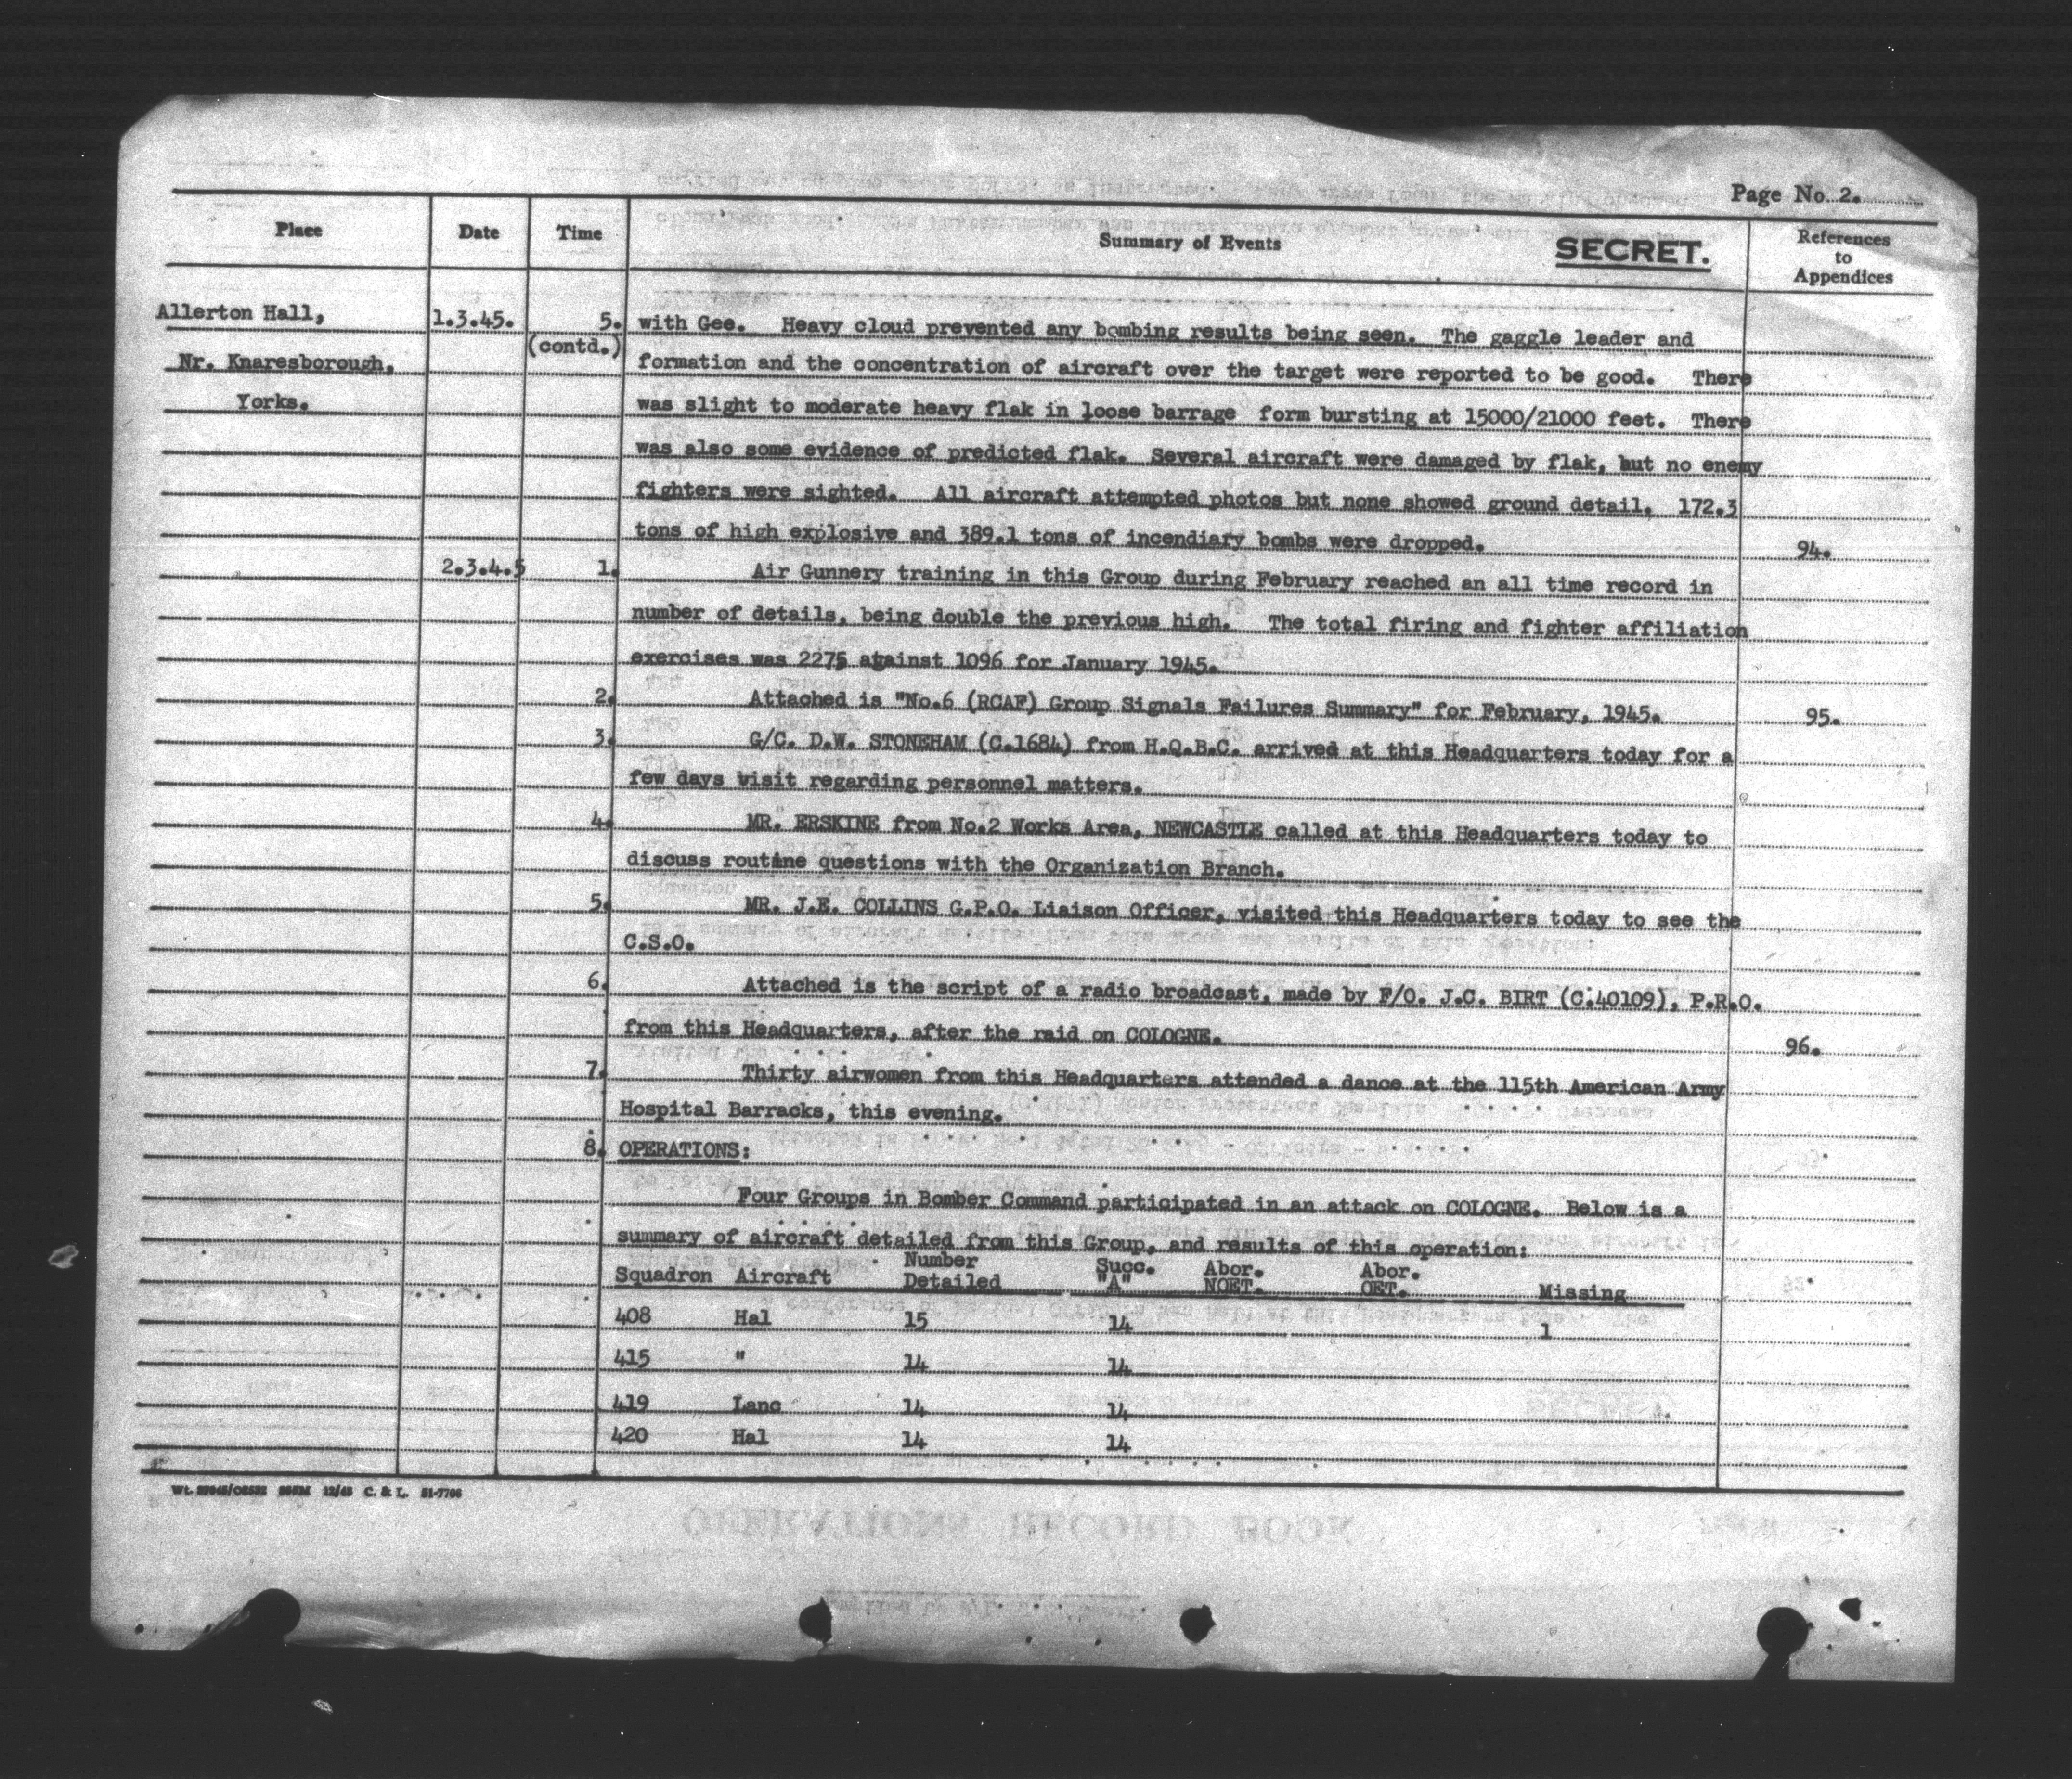 Page No. 2.
Place Date Time Summary of Events SECRET. References to Appendices
Allerton Hall, 1.3.45. 5. with Gee. Heavy cloud prevented any bombing results being seen. The gaggle leader and
(contd.)
Nr. Knaresborough, formation and the concentration of aircraft over the target were reported to be good. There
Yorks. was slight to moderate heavy flak in loose barrage form bursting at 15000/21000 feet. There
was also some evidence of predicted flak. Several aircraft were damaged by flak, but no enemy
fighters were sighted. All aircraft attempted photos but none showed ground detail. 172.3
tons of high explosive and 389.1 tons of incendiary bombs were dropped. 94.
2.3.4.5 1. Air Gunnery training in this Group during February reached an all time record in
number of details, being double the previous high. The total firing and fighter affiliation
exercises was 2275 against 1096 for January 1945.
2. Attached is "No.6 (RCAF) Group Signals Failures Summary" for February, 1945. 95.
3. G/C. D.W. STONEHAM (C.1684) from H.Q.B.C. arrived at this Headquarters today for a
few days visit regarding personnel matters.
4. MR. ERSKINE from No.2 Works Area, NEWCASTLE called at this Headquarters today to
discuss routine questions with the Organization Branch.
5. MR. J.E. COLLINS G.P.O. Liaison Officer, visited this Headquarters today to see the
C.S.O.
6. Attached is the script of a radio broadcast, made by F/O. J.C. BIRT (C.40109), P.R.O.
from this Headquarters, after the raid on COLOGNE. 96.
7. Thirty airwomen from this Headquarters attended a dance at the 115th American Army
Hospital Barracks, this evening.
8. OPERATIONS:
Four Groups in Bomber Command participated in an attack on COLOGNE. Below is a
summary of aircraft detailed from this Group, and results of this operation:
Number Succ. Abor. Abor.
Squadron Aircraft Detailed "A" NOET. OET. Missing
408 Hal 15 14 1
415 " 14 14
419 Lanc 14 14
420 Hal 14 14
12/43 C. & L. 51-7706